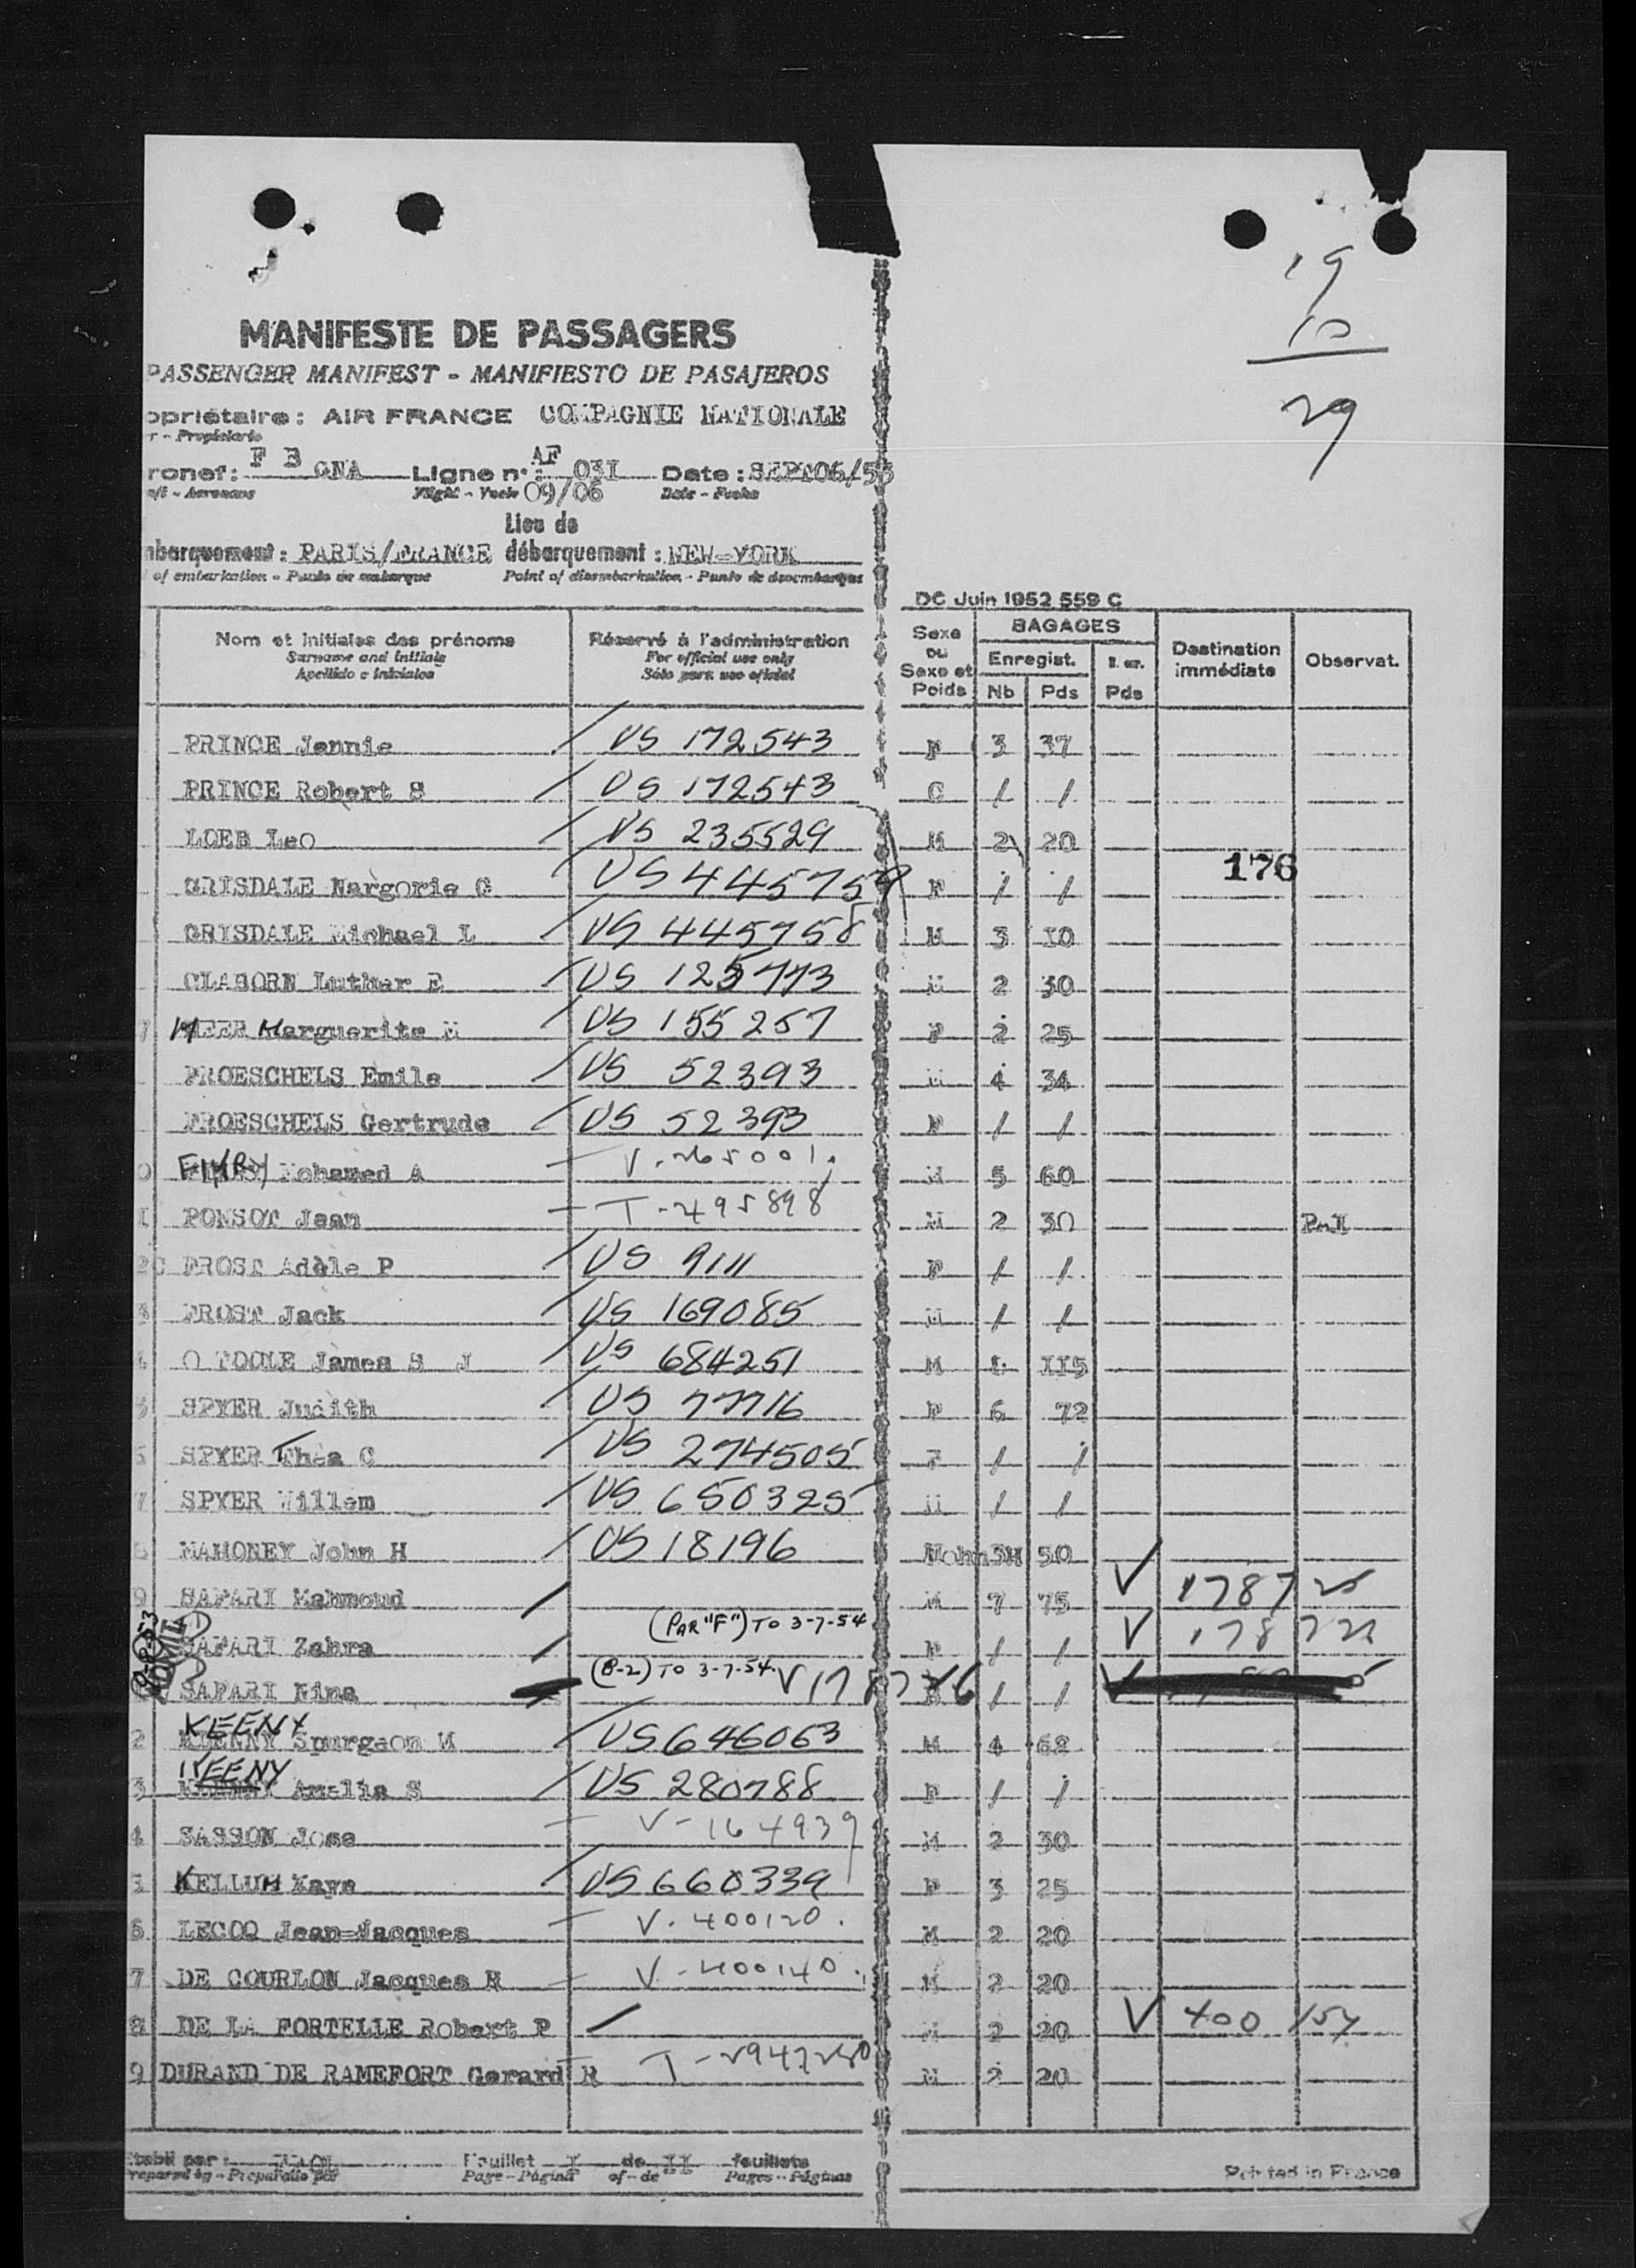 19
10
29
MANIFESTE DE PASSAGERS
PASSENGER MANIFEST - MANIFIESTO DE PASAJEROS
opriétaire : AIR FRANCE COMPAGNIE NATIONALE
r - Propietario
ronef : F B GNA Ligne n° : AF 03I Date : SEPT06/53
aft - Aeronave Flight - Vuelo 09/06 Date - Fecha
Lieu de
mbarquement : PARIS/FRANCE débarquement : NEW-YORK
of embarkation - Punto de embarque Point of disembarkation - Punto de desembarque
DC Juin 1952 559 C
Nom et initiales des prénoms Réservé à l'administration Sexe ou Sexe et Poids BAGAGES Destination immédiate Observat.
Surname and initials For official use only Enregist.
Apellido e iniciales Sólo para uso oficial Nb Pds Pds
PRINCE Jennie / US 172543 F 3 37
PRINCE Robert S / US 172543 C / /
LOEB Leo / US 235529 M 2 20
176
GRISDALE Nargorie G / US 445759 F / /
GRISDALE Michael L / US 445758 M 3 I0
CLABORN Luther E / US 125773 M 2 30
7 MEER Marguerite M / US 155257 F 2 25
FROESCHELS Emile / US 52393 M 4 34
FROESCHELS Gertrude / US 52393 F / /
0 Mohamed A - V-265001. M 5 60
I PONSOT Jean - T-495898 M 2 30
2 C FROST Adèle P / US 9111 F / /
3 FROST Jack / US 169085 M / /
4 O TOOLE James S J / US 684251 M II5
5 SPYER Judith / US 77716 F 6 72
6 SPYER Thea C / US 274505 F / /
7 SPYER Willem / US 650325 M / /
8 MAHONEY John H / US 18196 50
9 SAFARI Mahmoud / M 7 75 V 178725
(PAR "F") TO 3-7-54
SAFARI Zahra / F / / V
(B-2) TO 3-7-54
SAFARI Nina / /
2 KEENY Spurgeon M / US 646063 M 4 62
3 KEENY Amalia S / US 280788 F / /
4 SASSON Jose - V-164939 M 2 30
5 KELLUM Kaye / US 660339 F 3 25
6 LECOQ Jean-Jacques - V-400120. M 2 20
7 DE COURLON Jacques R - V-400140. M 2 20
8 DE LA FORTELLE Robert P / M 2 20 V 400154
9 DURAND DE RAMEFORT Gerard R T-2947250 M 2 20
Etabli par : Feuillet I de II feuillets
repared by - Preparado por Page - Página of - de Pages - Páginas
Printed in France